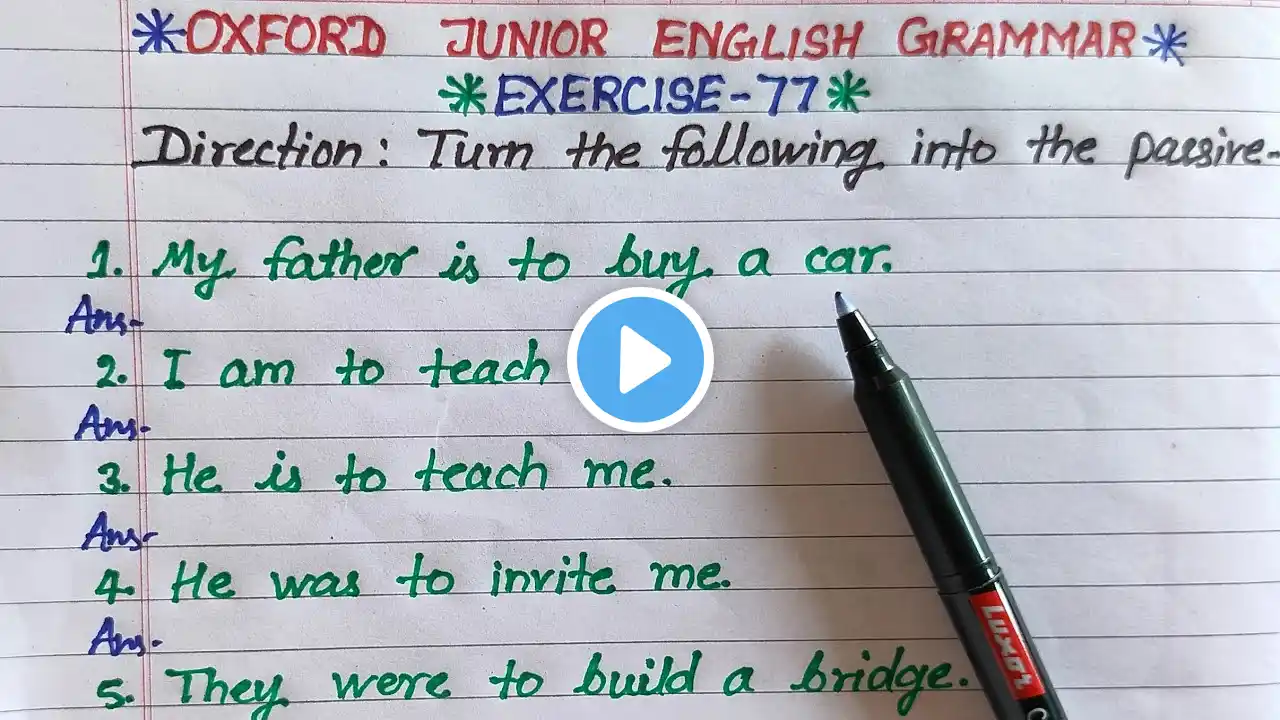 *OXFORD JUNIOR ENGLISH GRAMMAR*
*EXERCISE-77*
Direction: Turn the following into the passive-
1. My father is to buy a car.
Ans-
2. I am to teach
Ans-
3. He is to teach me.
Ans-
4. He was to invite me.
Ans-
5. They were to build a bridge.
Luxor